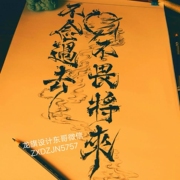 不畏將來
不念過去
龙啸设计东哥微信
ZXDZJN5757